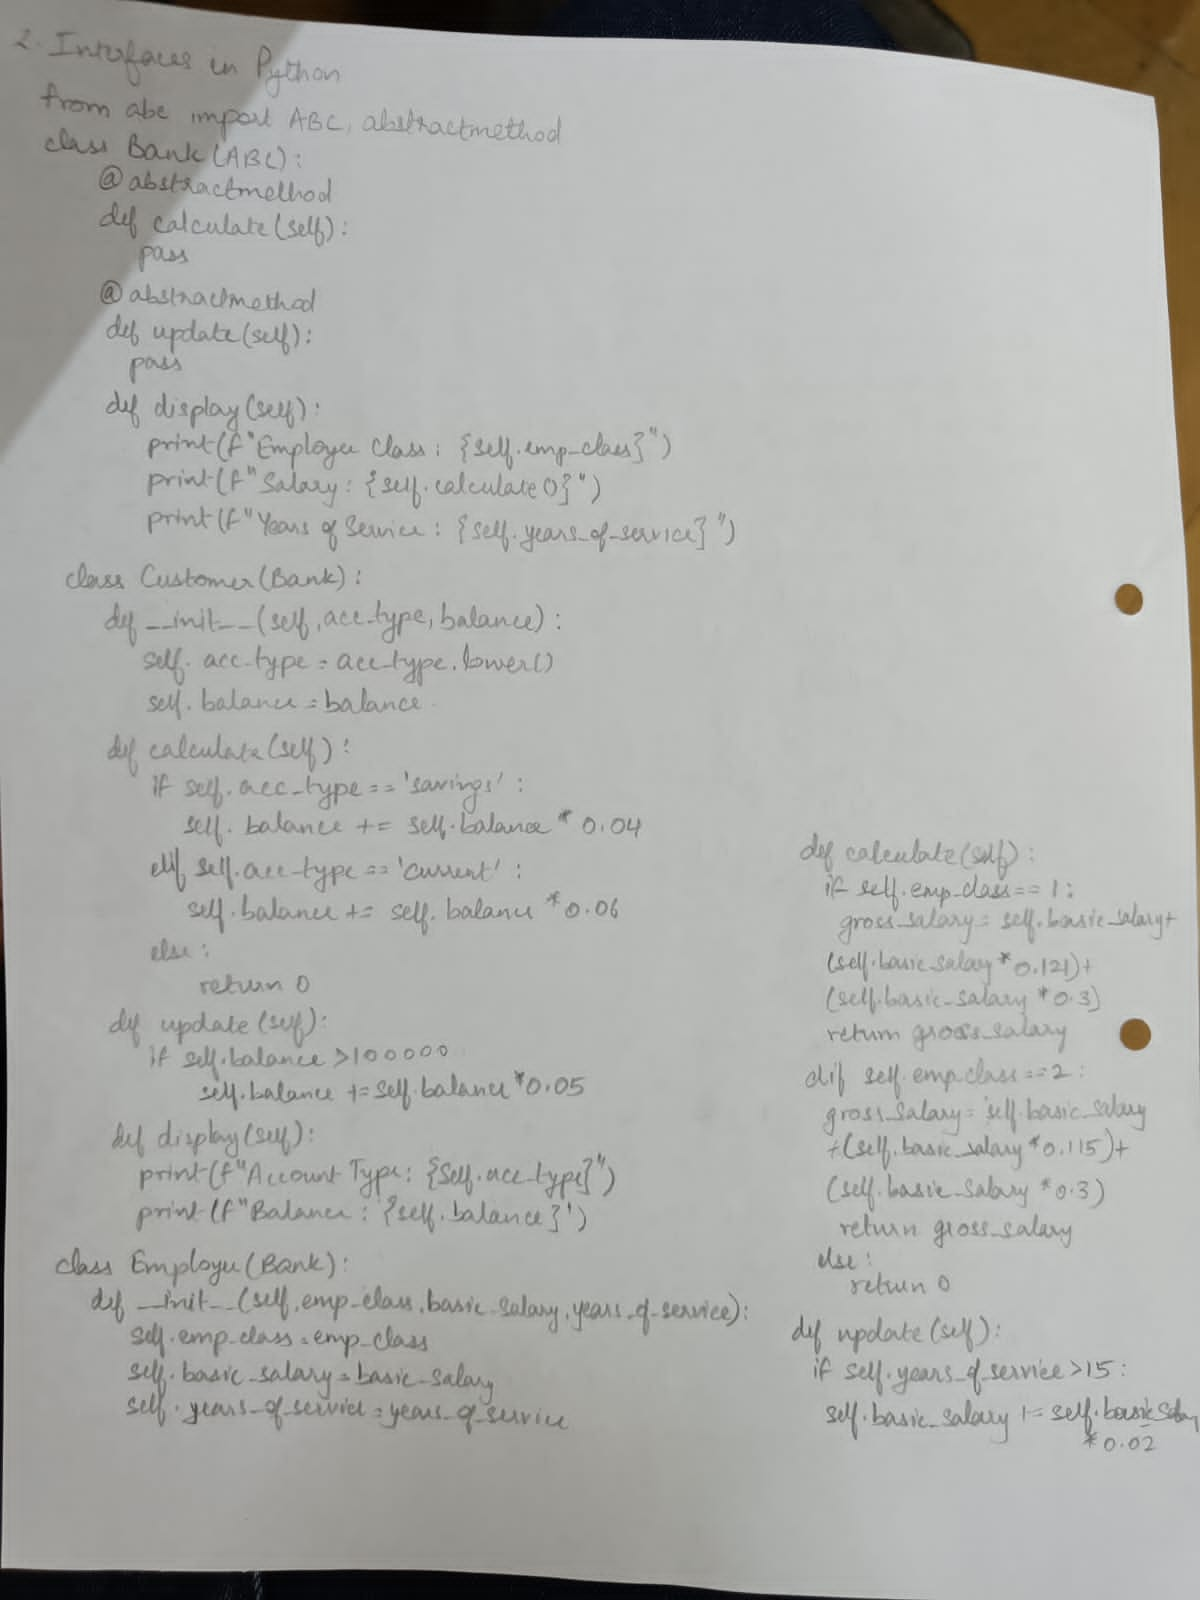 2. Interfaces in Python
from abc import ABC, abstractmethod
class Bank(ABC):
@abstractmethod
def calculate(self):
pass
@abstractmethod
def update(self):
pass
def display(self):
print(f"Employee Class: {self.emp_class}")
print(f"Salary: {self.calculate()}")
print(f"Years of Service: {self.years_of_service}")
class Customer(Bank):
def __init__(self, acc_type, balance):
self.acc_type = acc_type.lower()
self.balance = balance
def calculate(self):
if self.acc_type == 'savings':
self.balance += self.balance * 0.04
elif self.acc_type == 'current':
self.balance += self.balance * 0.06
else:
return 0
def update(self):
if self.balance > 100000
self.balance += self.balance * 0.05
def display(self):
print(f"Account Type: {self.acc_type}")
print(f"Balance: {self.balance}')
class Employee(Bank):
def __init__(self, emp_class, basic_salary, years_of_service):
self.emp_class = emp_class
self.basic_salary = basic_salary
self.years_of_service = years_of_service
def calculate(self):
if self.emp_class == 1:
gross_salary = self.basic_salary+
(self.basic_salary * 0.121)+
(self.basic_salary * 0.3)
return gross_salary
elif self.emp_class == 2:
gross_salary = self.basic_salary
+(self.basic_salary * 0.115)+
(self.basic_salary * 0.3)
return gross_salary
else:
return 0
def update(self):
if self.years_of_service > 15:
self.basic_salary += self.basic_salary
* 0.02